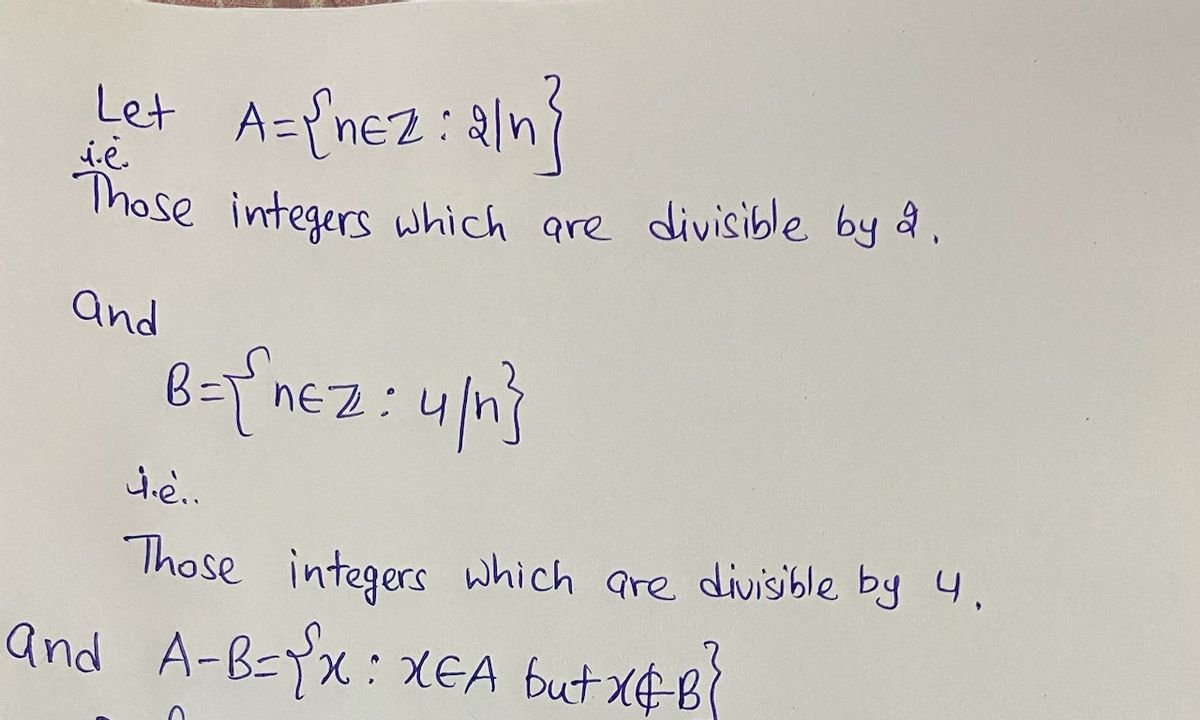 Let A={n∈ℤ : 2|n}
i.e.
Those integers which are divisible by 2.
and
B={n∈ℤ : 4|n}
i.e..
Those integers which are divisible by 4.
and A-B={x : x∈A but x∉B}